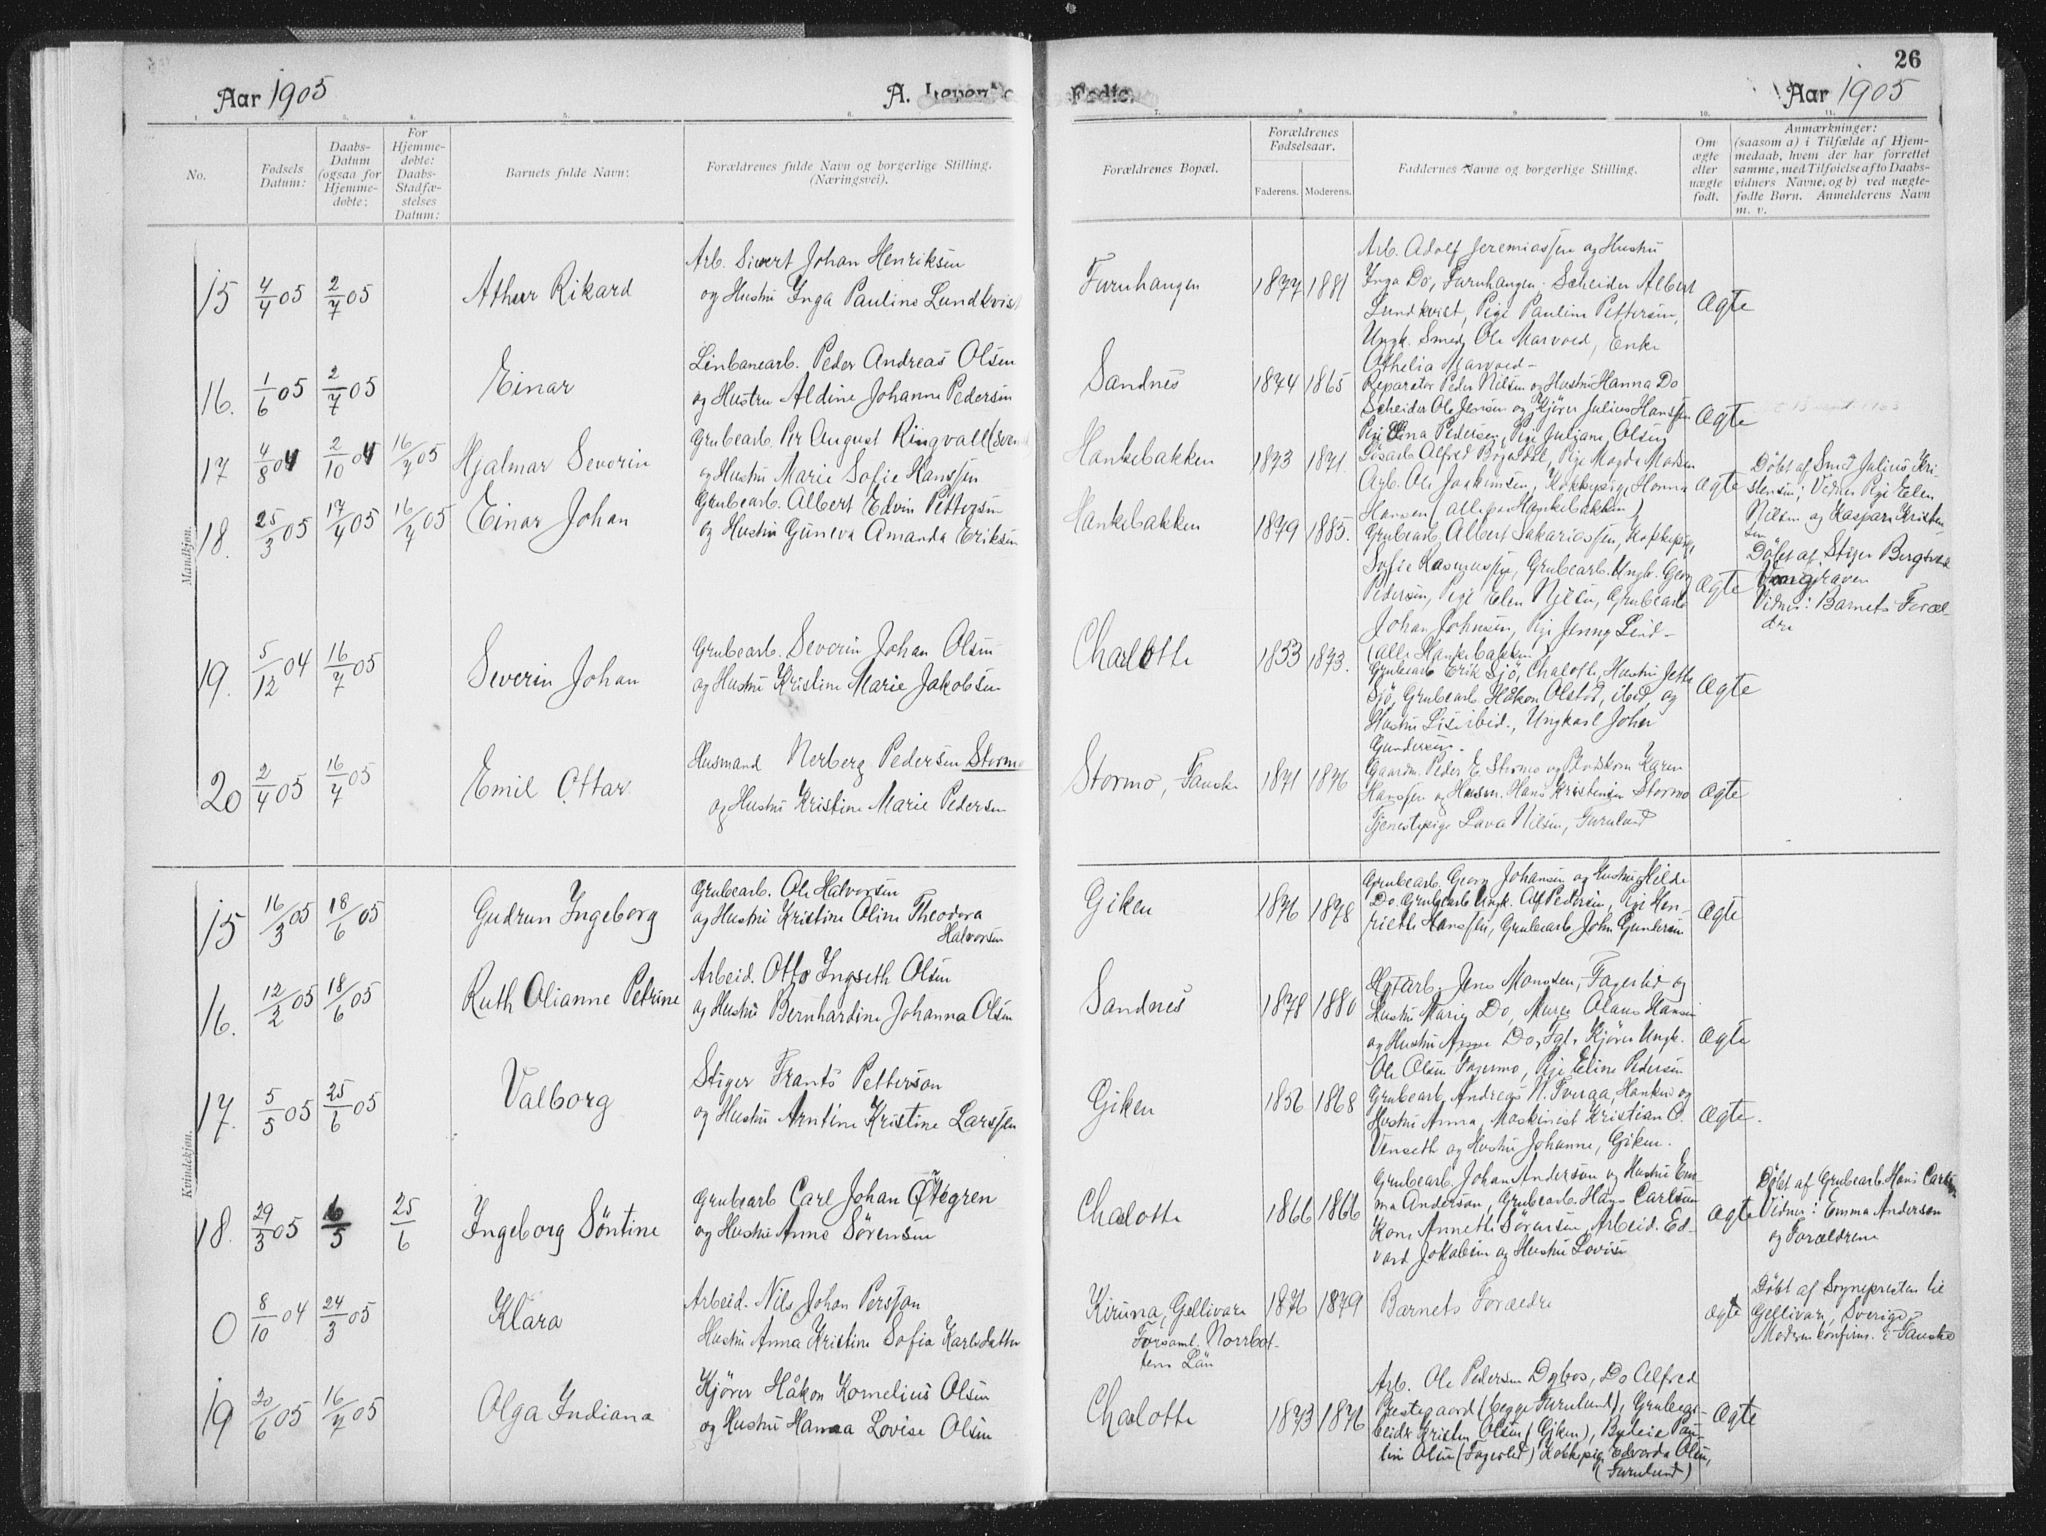 Aar 1905
A. Levende
No.
Fødsels Datum:
Daabs-Datum (ogsaa for Hjemme-døbte:
For Hjemme-døbte: Daabs-Stadfæ-stelses Datum:
Barnets fulde Navn:
Forældrenes fulde Navn og borgerlige Stilling. (Næringsvei).
Mandkjøn.
15 4/4 05 2/7 05 Athur Rikard
Arb. Sivert Johan Henriksen
og Hustru Inga Pauline Lundkvist
16. 1/6 05 2/7 05 Einar
Linbanearb. Peder Andreas Olsen
og Hustru Aldine Johanne Pedersen
17 4/8 04 2/10 04 16/7 05 Hjalmar Severin
Grubearb. Per August Ringvall
og Hustru Marie Sofie Hanssen
18. 25/3 05 17/4 05 16/7 05 Einar Johan
Grubearb. Albert Edvin Pettersen
og Hustru Guneva Amanda Eriksen
19. 5/12 04 16/7 05 Severin Johan
Grubearb. Severin Johan Olsen
og Hustru Kristine Marie Jakobsen
20 2/4 05 16/7 05 Emil Ottar
Husmand Nerberg Pedersen Stormo
og Hustru Kristine Marie Pedersen
Kvindekjøn.
15 16/3 05 18/6 05 Gudrun Ingeborg
Grubearb. Ole Halvorsen
og Hustru Kristine Oline Theodora
Halvorsen
16. 12/2 05 18/6 05 Ruth Olianne Petrine
Arbeid. Otto Ingseth Olsen
og Hustru Bernhardine Johanna Olsen
17. 5/5 05 25/6 05 Valborg
Stiger Frants Petterson
og Hustru Arntine Kristine Larssen
18. 29/3 05 6/5 25/6 Ingeborg Söntine
Grubearb Carl Johan Östegren
og Hustru Anna Sörensen
0 8/10 04 24/3 05 Klara
Arbeid. Nils Johan Persson
Hustru Anna Kristine Sofia Karlsdatter
19 20/6 05 16/7 05 Olga Indiana
Kjörer Håkon Kornelius Olsen
og Hustru Hanna Lovise Olsen
26
Fødte.
Aar 1905
Forældrenes Bopæl.
Forældrenes Fødselsaar.
Faderens. Moderens.
Faddernes Navne og borgerlige Stilling.
Om ægte eller uægte født.
Anmærkninger:
(saasom a) i Tilfælde af Hjem-
medaab, hvem der har forrettet
samme, med Tilføielse af to Daabs-
vidners Navne, og b) ved uægte-
fødte Børn. Anmelderens Navn
m. v.
Furuhaugen 1877 1881
Arb. Adolf Jeremiassen og Hustru
Inga Do, Furuhaugen. Scheider Albert
Lundkvist, Pige Pauline Pettersen,
Ungk. Smed Ole Marvoed, Enke
Othelia Marvoed
Ægte
Sandnes 1874 1865
Reparatør Peder Nilsen og Hustru Hanna Do
Scheider Ole Jensen og Kjörer Julius Hanssen
Pige Elina Pedersen, Pige Juliane Olsen
Ægte
Hankebakken 1873 1871
Arb. Ole Joakimsen, Kokkepige Hanna
Hansen (alle paa Hankebakken)
Ægte
Döbt af Smed Julius Kri-
stensen; Vidner Pige Elen
Nilsen og Kaspara Kristen-
sen
Hankebakken 1879 1885.
Grubearb. Albert Sakariassen, Kokkepige
Sofie Rasmussen, Grubearb. Ungk. Georg
Pedersen, Pige Elen Nilsen, Grubearb
Johan Johnsen, Pige Jenny Lind
(alle Hankebakken)
Ægte
Döbt af Stiger
Vidner: Barnets Foræl-
dre
Charlotte 1853 1873.
Grubearb Erik Sjö, Chalotte, Hustru Jette
Sjö, Grubearb Håkon Olstad, ibid, og
Hustru Lise ibid., Ungkarl Johan
Gundersen.
Ægte
Stormo, Fauske 1871 1876
Gaardm. Peder E. Stormo og Karen
Hanssen og Husm. Hans Kristensen Stormo
Tjenestepige Lava Nilsen, Furulund
Ægte
Giken 1876 1878
Grubearb. Georg Johansen og Hustru Hilda
Do. Grubearb Ungk. Alf Pedersen, Pige Hen-
riette Hanssen, Grubearb John Gundersen
Ægte
Sandnes 1878 1880
Hytarb. Jens Monssen, Fagerlid og
Hustru Marie Do, Murer Olaus Hansen
og Hustru Anna Do, Fgl. Kjörer Ungk.
Ole Olsen Fagermo, Pige Eline Pedersen
Ægte
Giken 1856 1868
Grubearb. Andreas N. Tveraa, Hanken og
Hustru Anna, Maskinist Kristian O.
Venseth og Hustru Johanne, Giken.
Ægte.
Chalotte 1866 1866
Grubearb. Johan Anderson og Hustru Em-
ma Anderson, Grubearb. Hans Carlson
Kone Annette Sörensen, Arbeid. Ed-
vard Jakobsen og Hustru Lovise
Ægte
Döbt af Grubearb. Hans Carlsson
Vidner: Emma Anderson
og Forældrene
Kiruna, Gellivare
Forsaml. Norrbot-
tens Län
1876 1879 Barnets Forældre
ægte
Döbt af Sognepresten til
Gellivare, Sverige
Modren konfirm. i Fauske
Chalotte 1873 1876
Arb. Ole Pedersen Dybos, Do Alfred
Prestegaard (begge Furulund), Grubear-
beider Kristen Olsen (Giken), Pau-
line Olsen (Fagerlid) Kokkepige Edvarda Olsen,
(Furulund)
Ægte